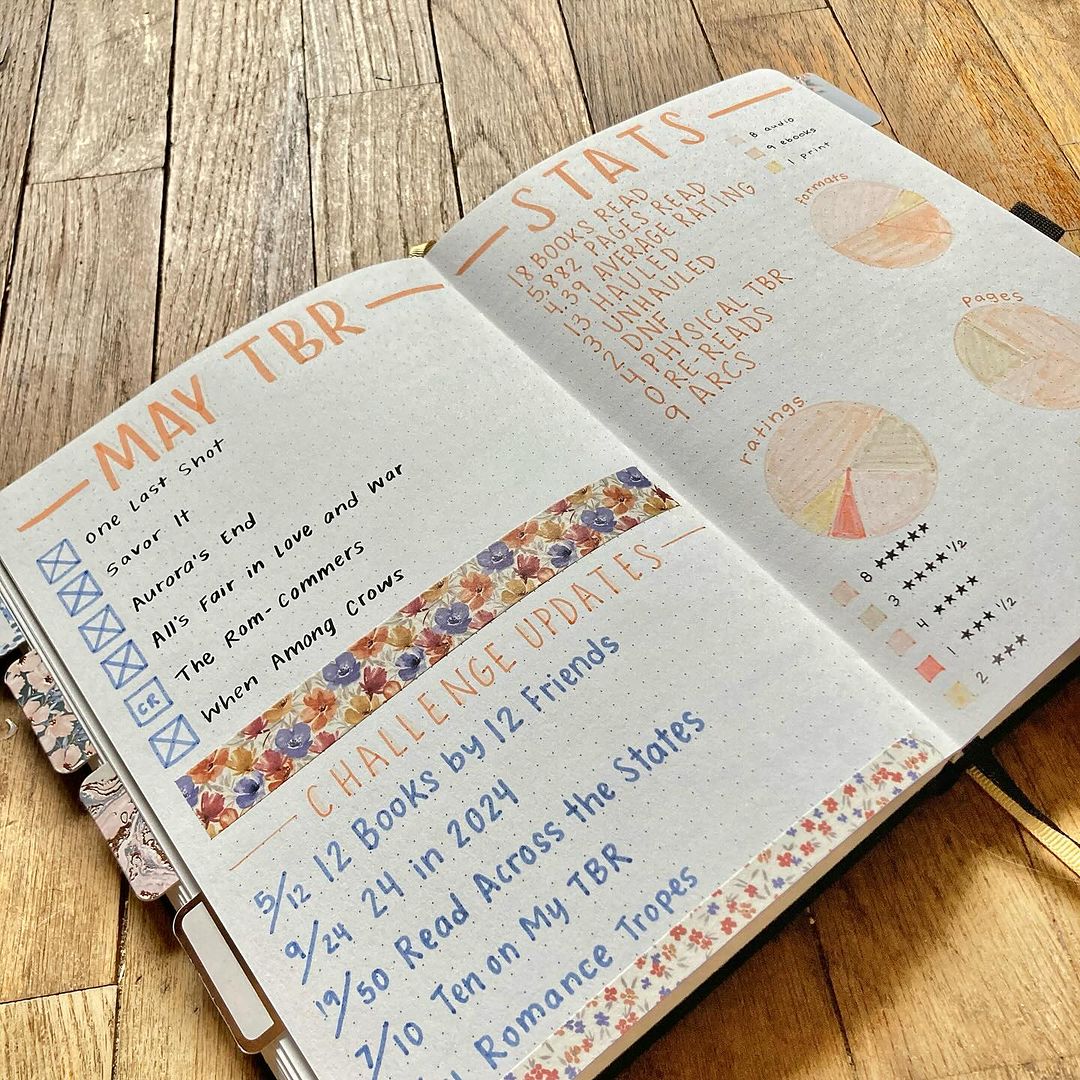 MAY TBR
One Last Shot
Savor It
Aurora's End
All's Fair in Love and War
CR The Rom-Commers
When Among Crows
CHALLENGE UPDATES
5/12 12 Books by 12 Friends
9/24 24 in 2024
19/50 Read Across the States
7/10 Ten on My TBR
Romance Tropes
STATS
18 BOOKS READ
5,882 PAGES READ
4.39 AVERAGE RATING
13 HAULED
3 UNHAULED
2 DNF
4 PHYSICAL TBR
0 RE-READS
9 ARCS
8 audio
9 ebooks
1 print
Formats
Pages
ratings
8 ★★★★★
3 ★★★★1/2
4 ★★★★
1 ★★★1/2
2 ★★★